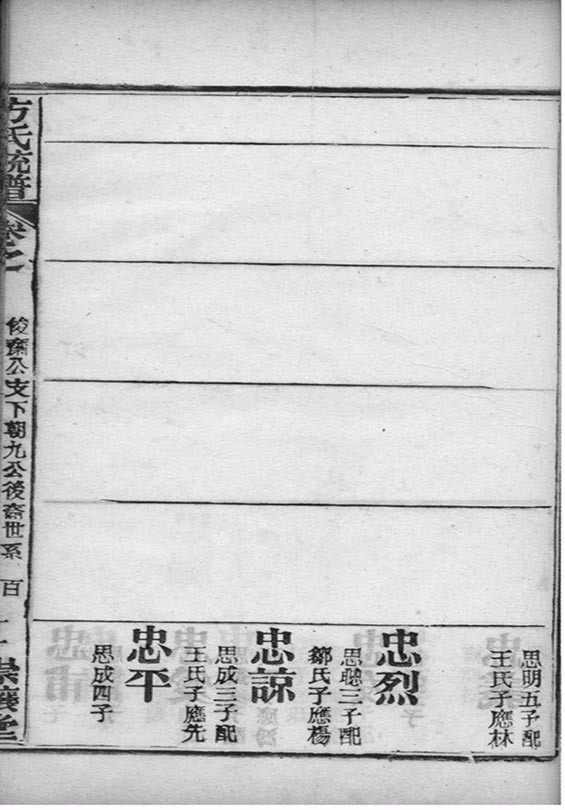 思明五子配
王氏子應林
忠烈
思聰三子配
鄒氏子應楊
忠諒
思成三子配
王氏子應先
忠平
思成四子
方氏統譜
卷之
俊齋公支下朝九公後裔世系
百